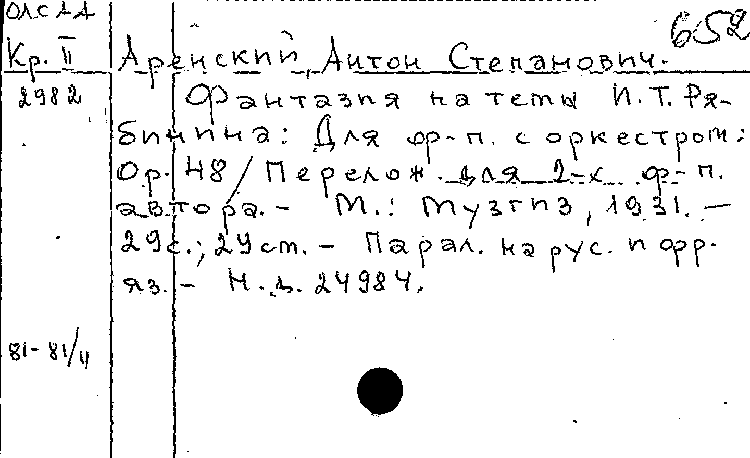 ОЛСАА
652
Кр. II Аренский, Антон Степанович.
2982 Фантазия на темы И.Т. Ря-
бинина: Для ф-п. с оркестром:
Ор. 48 / Перелож. для 2-х ф-п.
автора. - М.: Музгиз, 1931. -
29 с.; 29 cm. - Парал. на рус. и фр.
яз. - Н.д. 24984.
81-81/4